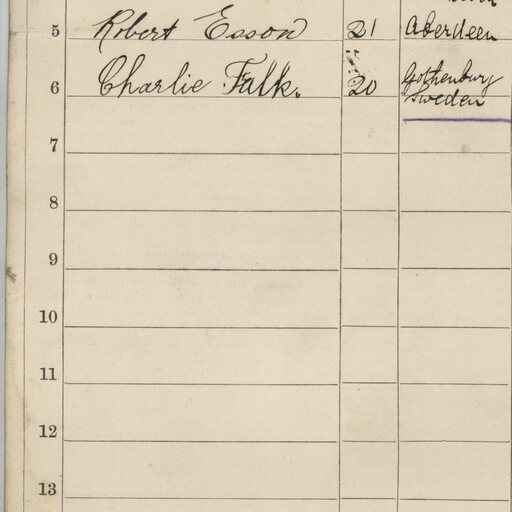 5 Robert Esson 21 Aberdeen
6 Charlie Falk. 20 Gothenburg
Sweden
7
8
9
10
11
12
13